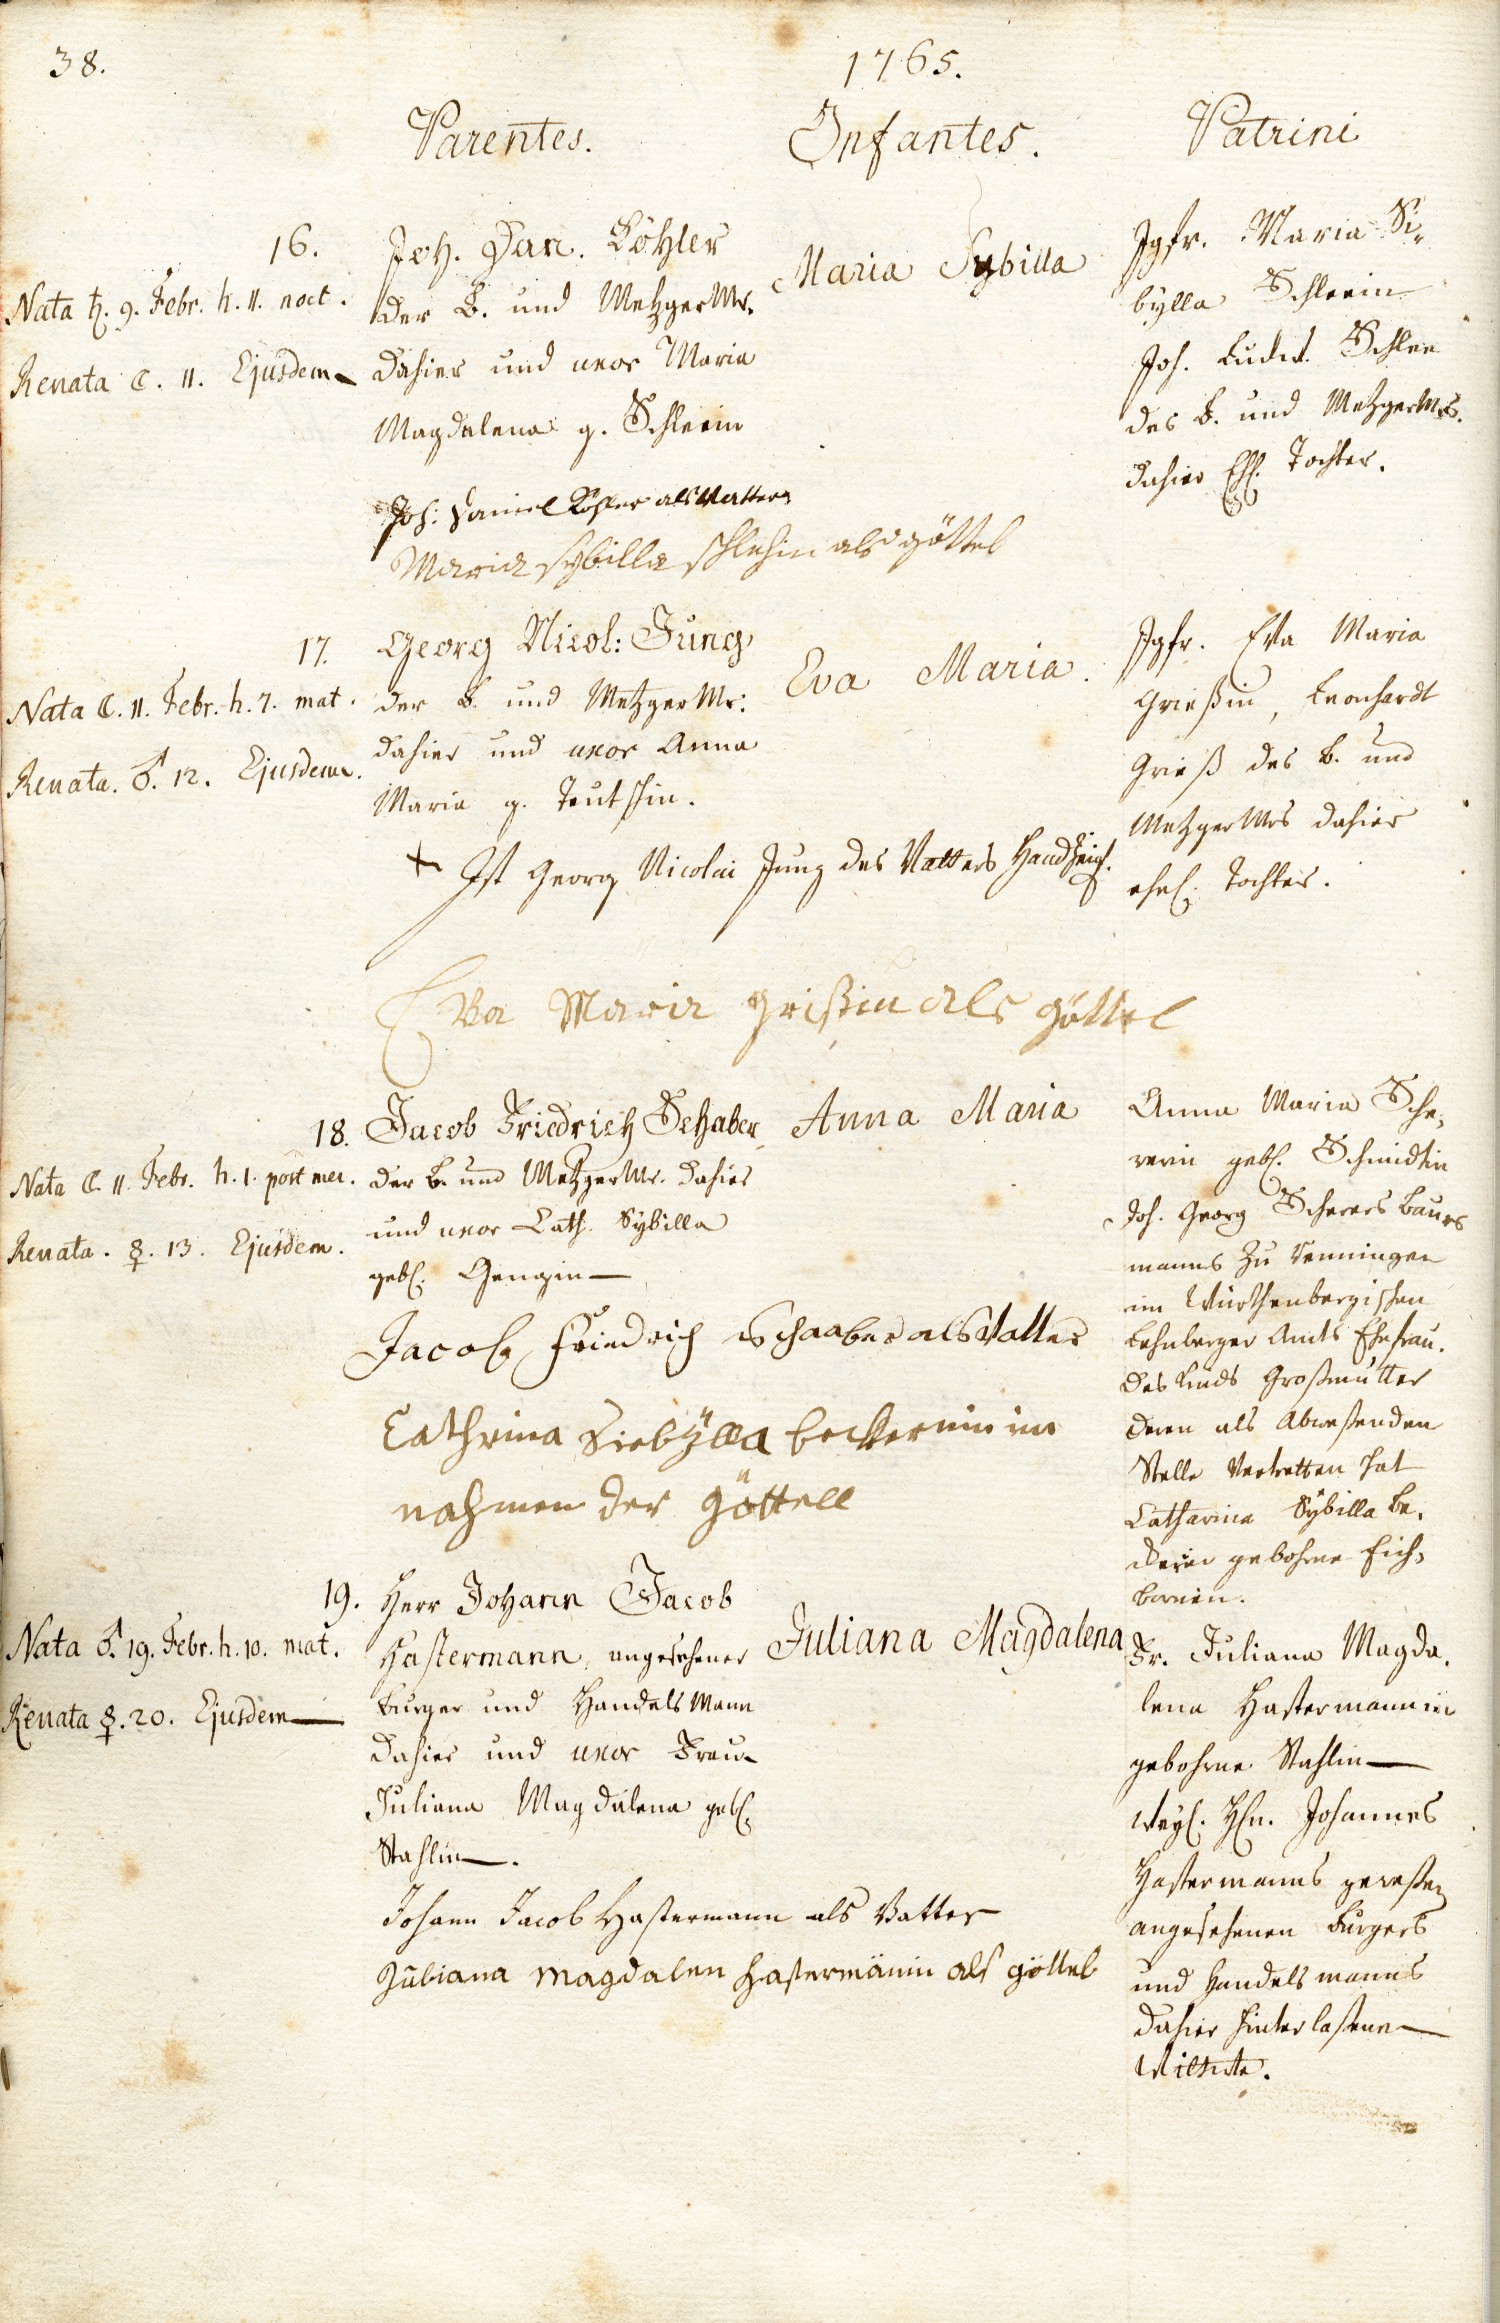 38.
1765.
Parentes.
Infantes.
Patrini
16.
Nata ♄. 9. Febr. h. 11. noct.
Renata ☾. 11. Ejusdem
Joh. Dan. Köhler
der B. und MetzgerMr.
dahier und uxor Maria
Magdalena g. Schleein
Maria Sybilla
Jgfr. Maria Si-
bylla Schleein
Joh. Ludw. Schlee
des B. und MetzgerMrs.
dahier Ehl. Tochter.
Joh: Daniel Köhler als Vatter
Maria sybilla schlehin als göttel
17.
Nata ☾. 11. Febr. h. 7. mat.
Renata. ♂. 12. Ejusdem.
Georg Nicol: Jung
der B. und MetzgerMr:
dahier und uxor Anna
Maria g. Teutschin.
Eva Maria.
Jgfr. Eva Maria
Grießin, Leonhardt
Grieß des B. und
MetzgerMrs dahier
ehel. Tochter.
+ Ist Georg Nicolai Jung des Vatters Handzeich.
Eva Maria grißin als göttel
18.
Nata ☾. 11. Febr. h. 1. post mer.
Renata. ☿. 13. Ejusdem.
Jacob Friedrich Schaber
der B. und MetzgerMr. dahier
und uxor Cath. Sybilla
gebl. Gengin
Anna Maria
Anna Maria Sche-
rerin gebl. Schmidtin
Joh. Georg Scherers Bauers
manns zu Venningen
im Würthenbergischen
Lehnberger Amts Ehefrau.
des Kinds Großmutter
deren als Abweßenden
Stelle Vertretten hat
Catharina Sybilla Be-
gebohrne Eich-
Jacob Friedrich Schaaber als Vatter
Cathrina Siebÿlla beckerinin im
nahmen der göttell
19.
Nata ♂. 19. Febr. h. 10. mat.
Renata ☿. 20. Ejusdem
Herr Johann Jacob
Hastermann, angesehener
Burger und Handels Mann
dahier und uxor Frau
Juliana Magdalena gebl.
Stahlin.
Juliana Magdalena
Fr. Juliana Magda-
lena Hastermannin
gebohrne Stahlin
Weyl. Hn. Johannes
Hastermanns geweßen
angesehenen Burgers
und Handelsmanns
dahier hinterlaßene
Wittwe.
Johann Jacob Hastermann als Vatter
Juliana magdalen hastermänin als göttel